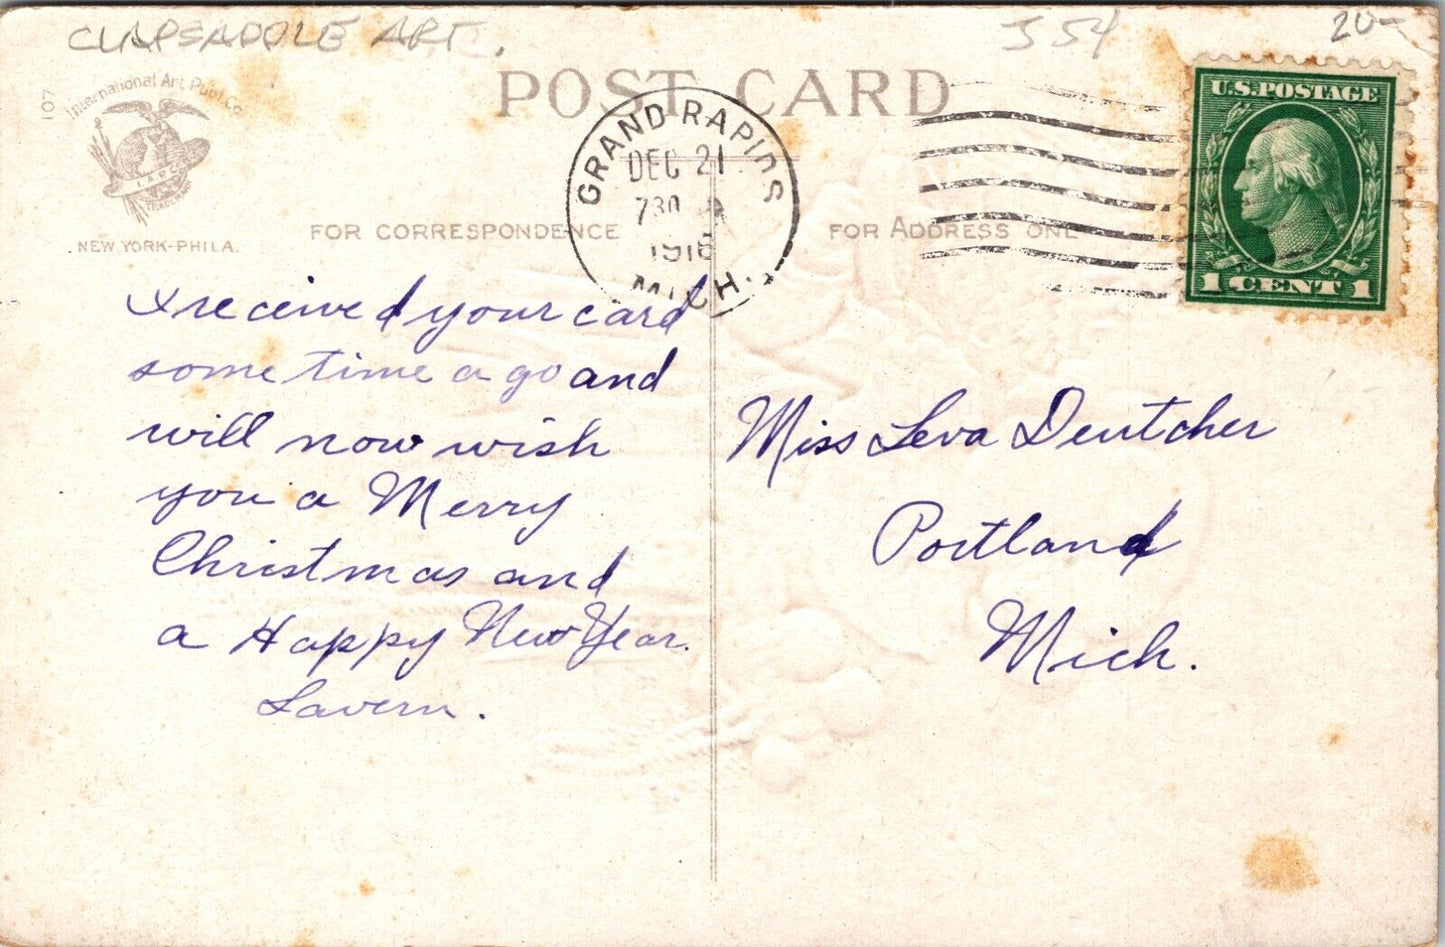 CLAPSADDLE ART.
J 54
20-
107
International Art Publ. Co.
I.A.P.Co.
NEW YORK-PHILA.
POST CARD
FOR CORRESPONDENCE
FOR ADDRESS ONLY
GRAND RAPIDS
DEC 21
730 A
1916
MICH.
U.S. POSTAGE
1 CENT 1
I received your card
some time a go and
will now wish
you a Merry
Christmas and
a Happy New Year.
Lavern.
Miss Leva Deutcher
Portland
Mich.